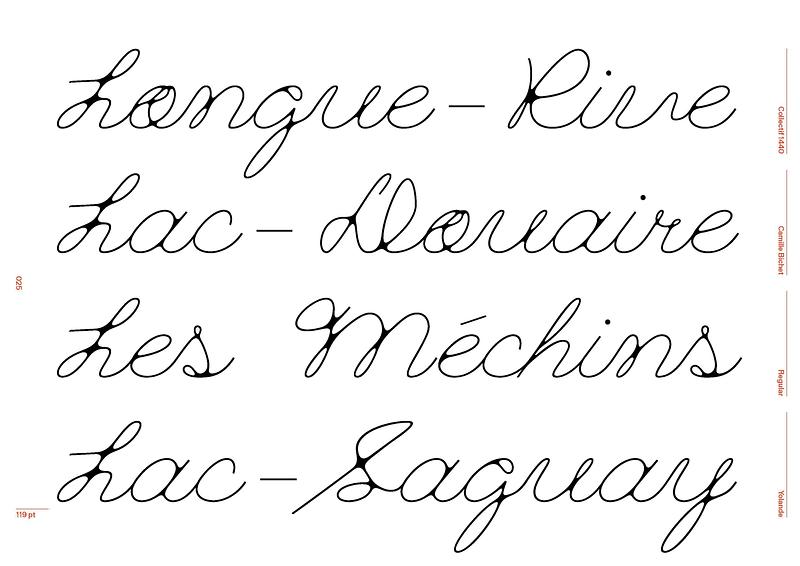 Longue – Rive
Lac – Douaire
Les Méchins
Lac – Saguay
Collectif 1440
Camille Bichet
Regular
Yolande
025
119 pt